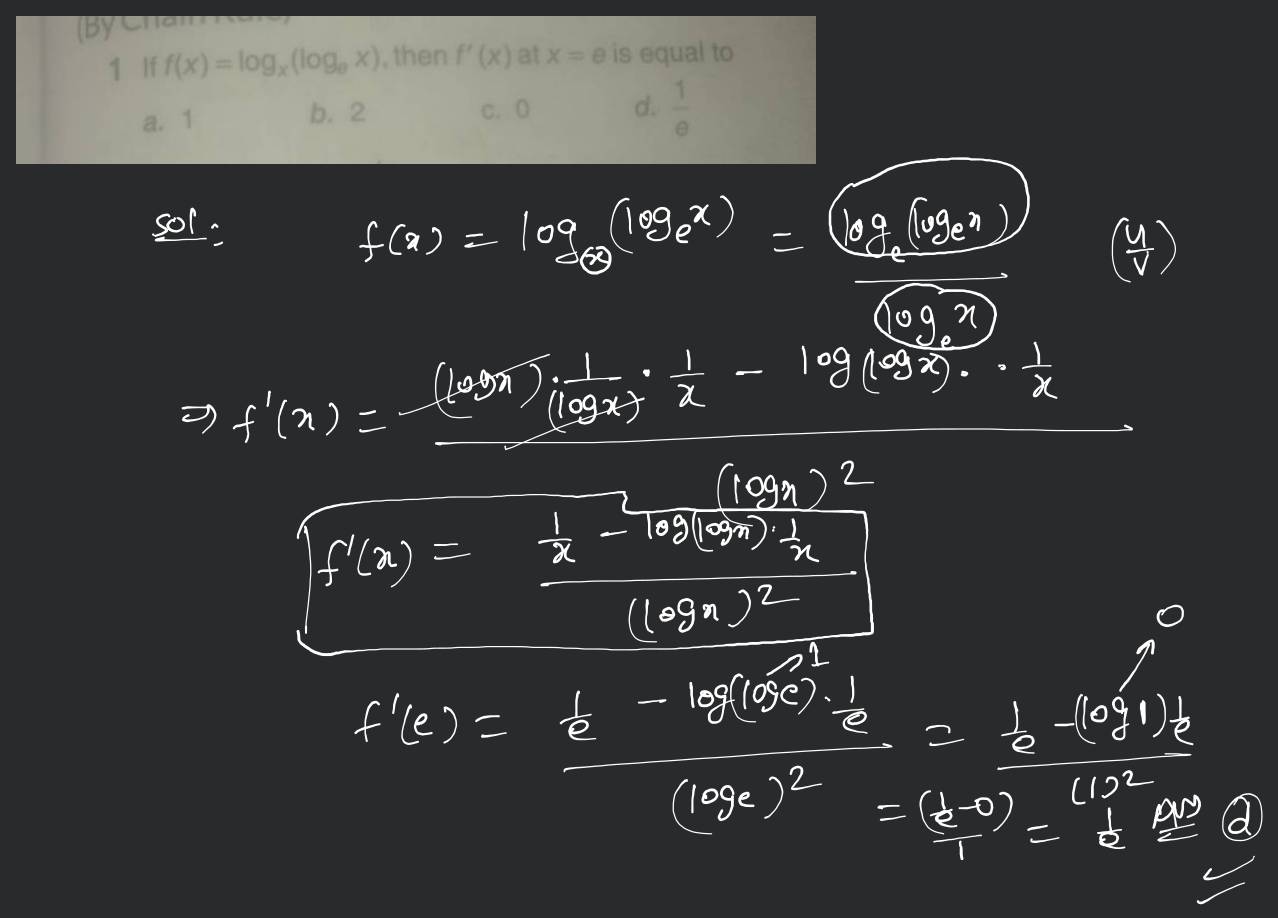 (By Chain Rule)
1 If f(x) = logₓ(logₑ x), then f' (x) at x = e is equal to
a. 1 b. 2 c. 0 d. 1/e
sol: f(x) = log_x (log_e x) = log_e (log_e x) / log_e x (u/v)
⇒ f'(x) = ((log x) · 1/(log x) · 1/x − log (log x) · · 1/x) / (log x)²
f'(x) = (1/x − log(log x) · 1/x) / (log x)²
f'(e) = (1/e − log(log e) · 1/e) / (log e)² = (1/e − (log 1) 1/e) / (1)²
1
0
= (1/e − 0) / 1 = 1/e Ans (d)